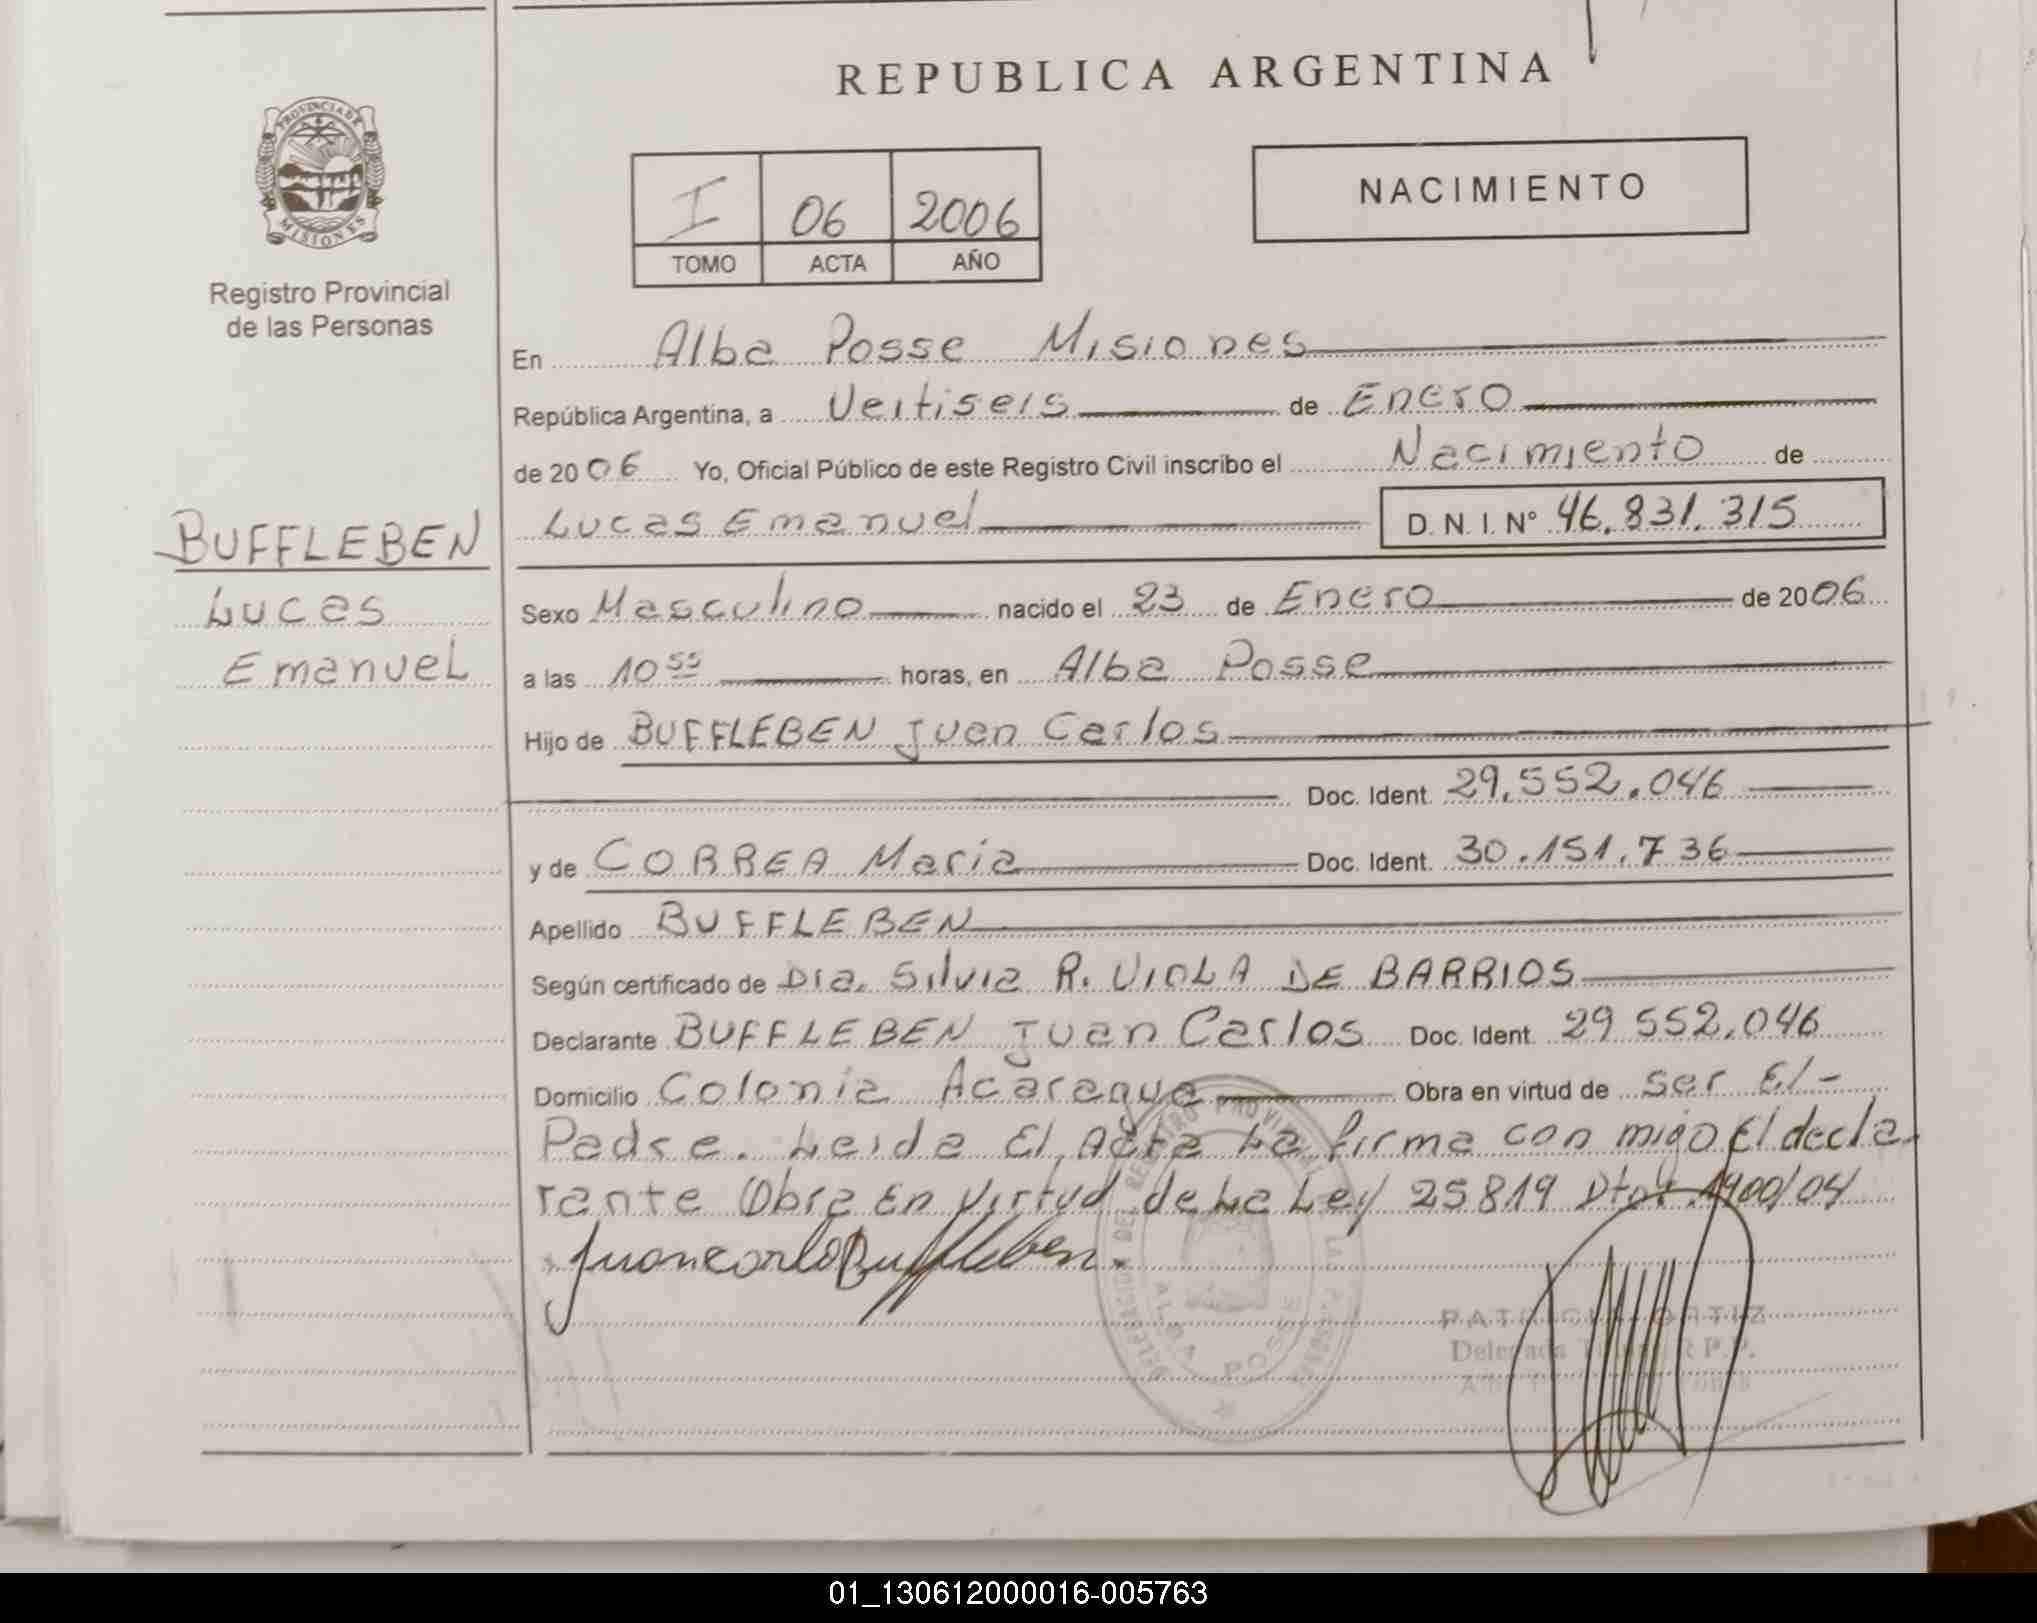 REPUBLICA ARGENTINA
PROVINCIA DE
MISIONES
Registro Provincial
de las Personas
I 06 2006
TOMO ACTA AÑO
NACIMIENTO
En Alba Posse Misiones
República Argentina, a Veitiseis de Enero
de 2006 Yo, Oficial Público de este Registro Civil inscribo el Nacimiento de
Lucas Emanuel D. N. I. Nº 46.831.315
BUFFLEBEN
Lucas
Emanuel
Sexo Masculino nacido el 23 de Enero de 2006
a las 10 55 horas, en Alba Posse
Hijo de BUFFLEBEN Juan Carlos
Doc. Ident. 29.552.046
y de CORREA Maria Doc. Ident. 30.151.736
Apellido BUFFLEBEN
Según certificado de Dra. Silvia R. VIOLA DE BARRIOS
Declarante BUFFLEBEN Juan Carlos Doc. Ident. 29 552.046
Domicilio Colonia Acaragua Obra en virtud de ser El-
Padre. Leida El Acta La firma con migo El decla
rante Obra En Virtud de La Ley 25819 Dto. 1900/04
Juan carlo Buffleben
DELEGACION DEL REGISTRO PROVINCIAL DE LAS PERSONAS
ALBA POSSE
PATRICIA ORTIZ
Delegada R.P.P.
01_130612000016-005763